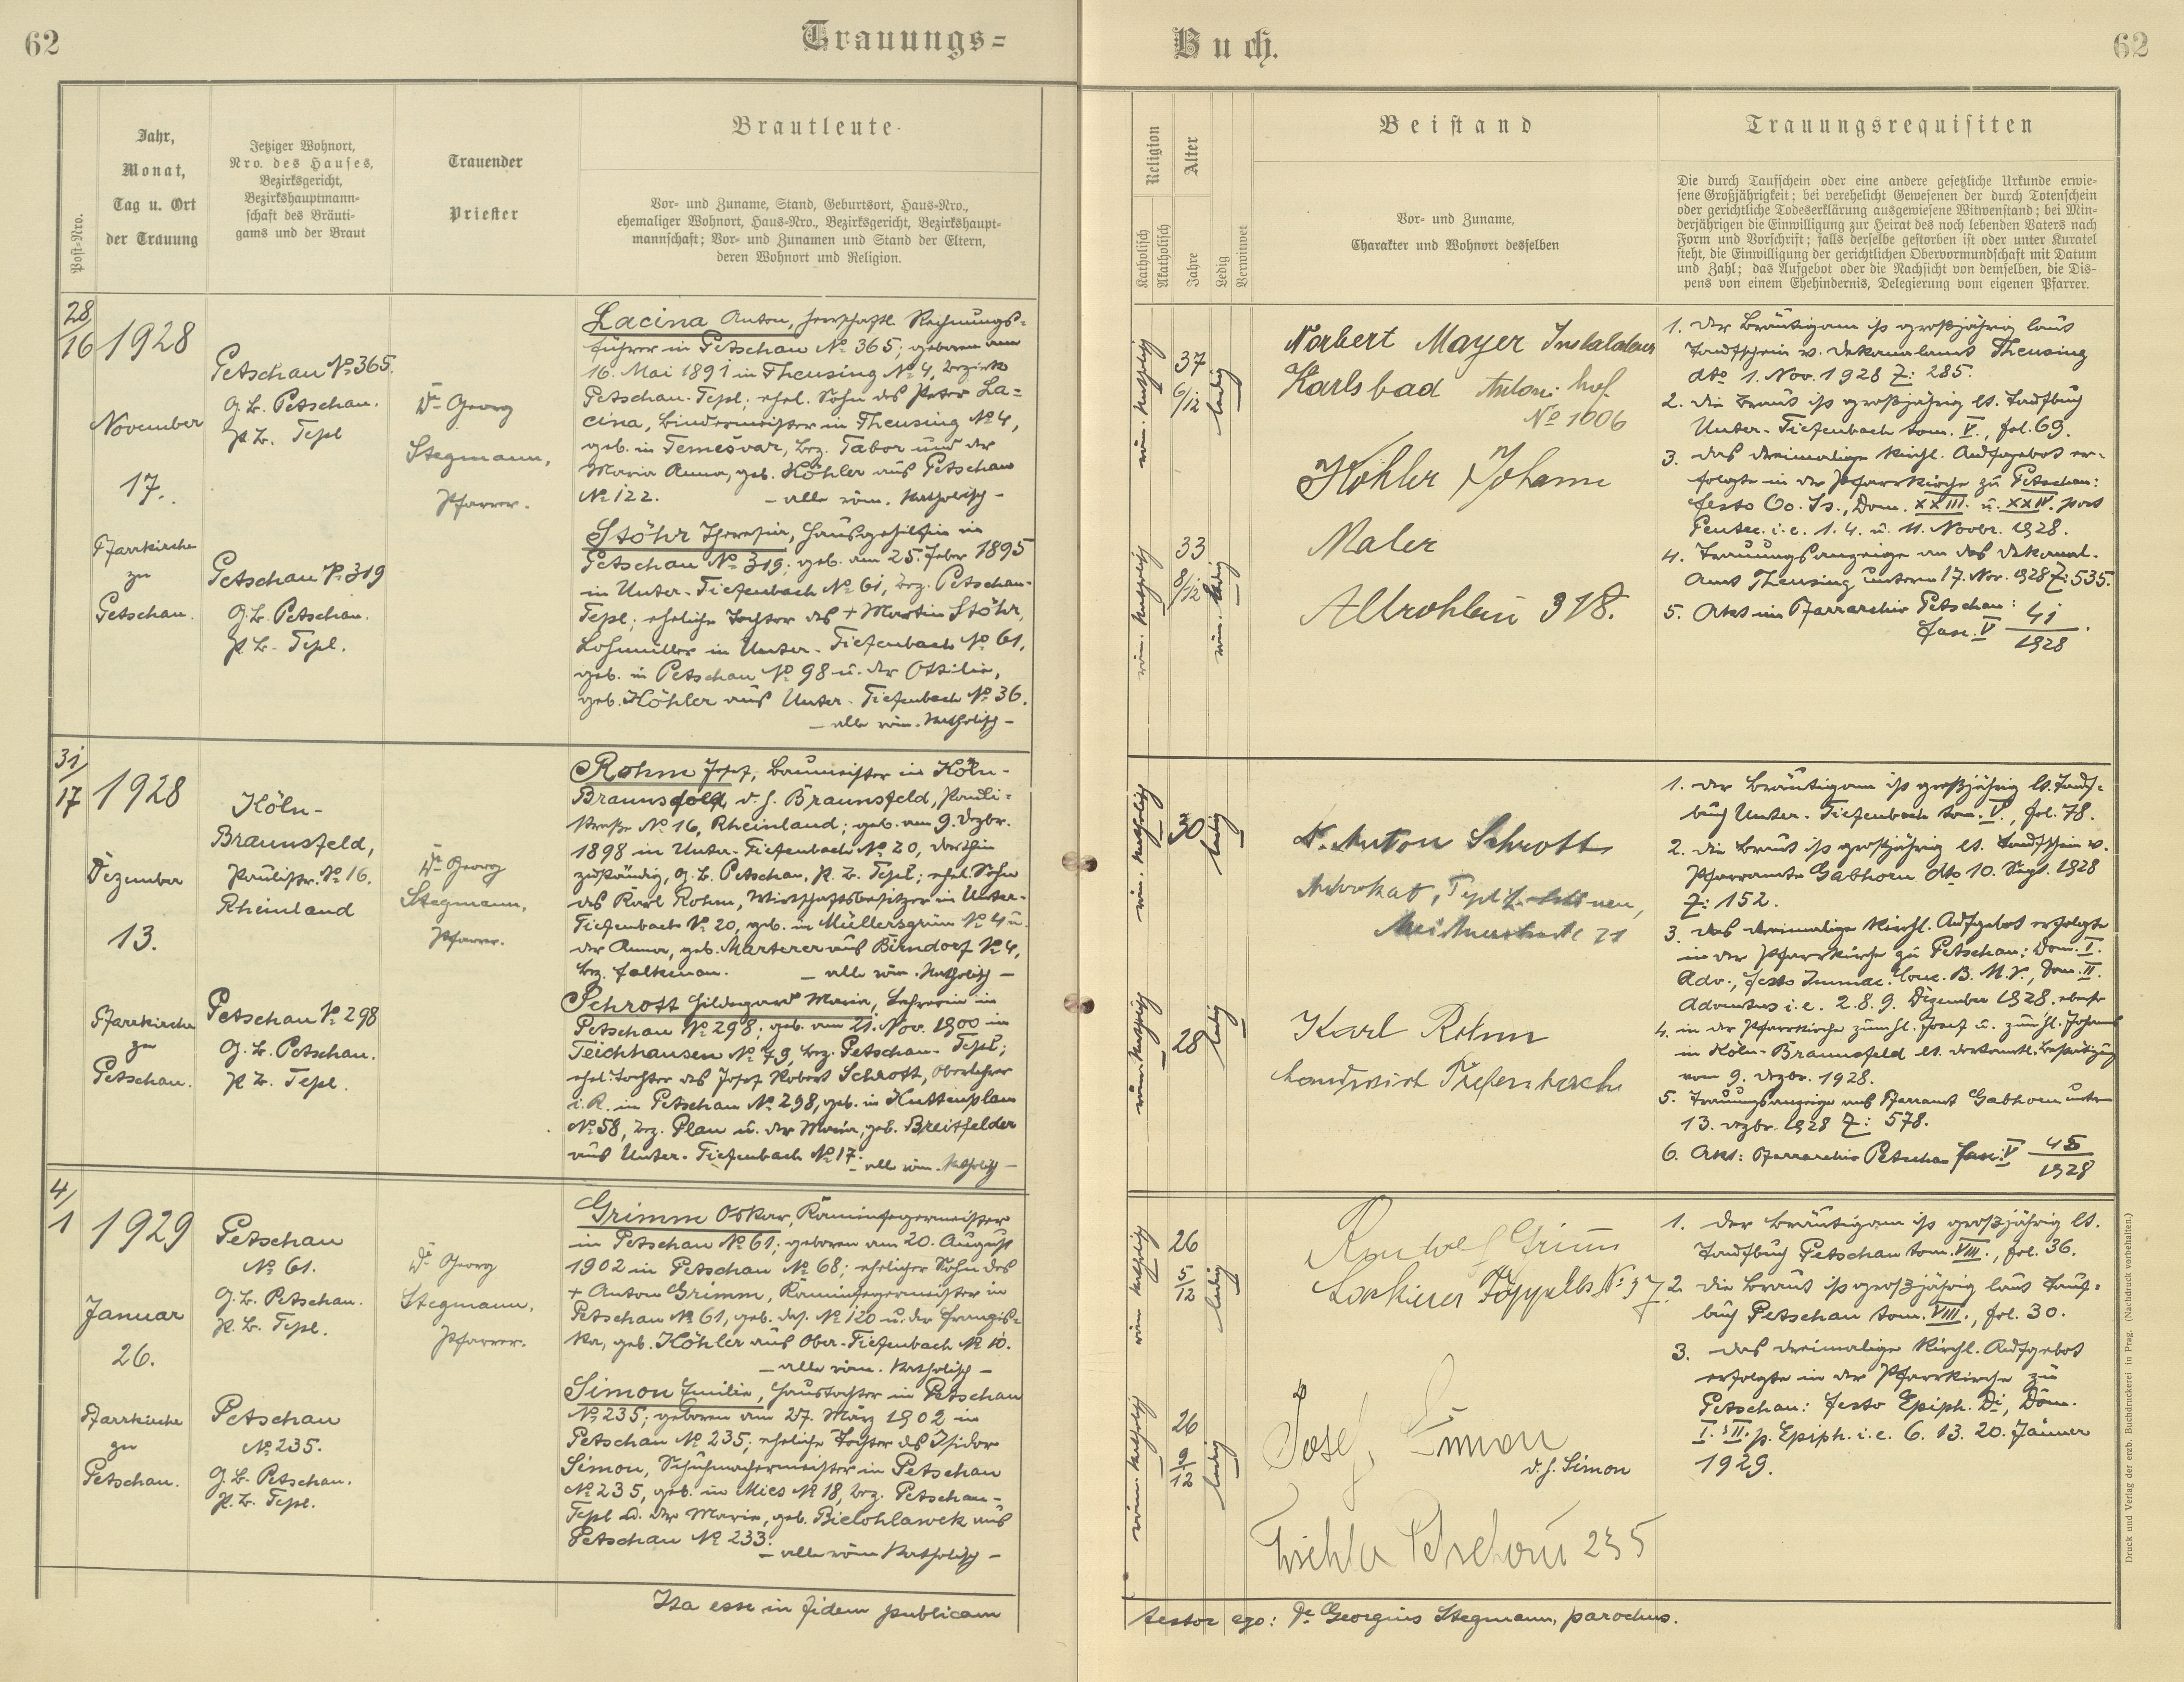 62
Trauungs=
Buch.
62
Post-Nro.
Jahr,
Monat,
Tag u. Ort
der Trauung
Jetziger Wohnort,
Nro. des Hauses,
Bezirksgericht,
Bezirkshauptmann-
schaft des Bräuti-
gams und der Braut
Trauender
Priester
Brautleute
Vor- und Zuname, Stand, Geburtsort, Haus-Nro.,
ehemaliger Wohnort, Haus-Nro., Bezirksgericht, Bezirkshaupt-
mannschaft; Vor- und Zunamen und Stand der Eltern,
deren Wohnort und Religion.
Religion
Katholisch
Akatholisch
Alter
Jahre
Ledig
Verwitwet
Beistand
Vor- und Zuname,
Charakter und Wohnort desselben
Trauungsrequisiten
Die durch Taufschein oder eine andere gesetzliche Urkunde erwie-
sene Großjährigkeit; bei verehelicht Gewesenen der durch Totenschein
oder gerichtliche Todeserklärung ausgewiesene Witwenstand; bei Min-
derjährigen die Einwilligung zur Heirat des noch lebenden Vaters nach
Form und Vorschrift; falls derselbe gestorben ist oder unter Kuratel
steht, die Einwilligung der gerichtlichen Obervormundschaft mit Datum
und Zahl; das Aufgebot oder die Nachsicht von demselben, die Dis-
pens von einem Ehehindernis, Delegierung vom eigenen Pfarrer.
28/16
1928
November
17.
Pfarrkirche
zu
Petschau.
Petschau No 365.
G. B. Petschau.
P. B. Tepl
Petschau No 319
G. B. Petschau.
P. B. Tepl.
Dr Georg
Stegmann,
Pfarrer.
Lacina Anton, herrschaftl. Rechnungs-
führer in Petschau No 365; geboren am
16. Mai 1891 in Theusing No 4, Bezirk
Petschau-Tepl; ehel. Sohn des Peter La=
cina, Bindermeister in Theusing No 4,
geb. in Temešvar, Bez. Tabor und der
Maria Anna, geb. Köhler aus Petschau
No 122. – alle röm. katholisch –
Stöhr Theresia, Hausgehilfin in
Petschau No 319; geb. am 25. Feber 1895
in Unter-Tiefenbach No 61, Bez. Petschau-
Tepl; eheliche Tochter des + Martin Stöhr,
Lohmüller in Unter-Tiefenbach No 61,
geb. in Petschau No 98 u. der Ottilie,
geb. Köhler aus Unter-Tiefenbach No 36.
– alle röm. katholisch –
röm. katholisch
37
6/12
ledig
röm. katholisch
33
8/12
röm. ledig
Norbert Mayer Instalateur
Karlsbad Antoni hof.
No 1006
Köhler Johann
Maler
Altrohlau 318.
1. Der Bräutigam ist großjährig laut
Taufschein v. Dekanalamt Theusing
dto 1. Nov. 1928 Z: 285.
2. Die Braut ist großjährig lt. Taufbuch
Unter-Tiefenbach tom. V., fol. 69.
3. Das dreimalige kirchl. Aufgebot er-
folgte in der Pfarrkirche zu Petschau:
festo Oo. Ss., Dom. XXIII. u. XXIV. post
Pentec. i. e. 1. 4. u. 11. Novbr. 1928.
4. Trauungsanzeige an das Dekanal-
Amt Theusing unterm 17. Nov. 1928 Z: 535.
5. Akt im Pfarrarchiv Petschau:
fasc. V 41/1928.
31/17
1928
Dezember
13.
Pfarrkirche
zu
Petschau.
Köln-
Braunsfeld,
Paulistr. No 16.
Rheinland
Petschau No 298
G. B. Petschau.
P. B. Tepl.
Dr Georg
Stegmann,
Pfarrer.
Rohm Josef, Baumeister in Köln-
Braunsfeld, d. h. Braunsfeld, Pauli-
straße No 16, Rheinland; geb. am 9. Dezbr.
1898 in Unter-Tiefenbach No 20, dorthin
zuständig, G. B. Petschau, P. B. Tepl; ehel. Sohn
des Karl Rohm, Wirtschaftsbesitzer in Unter-
Tiefenbach No 20, geb. in Müllersgrün No 4 u.
der Anna, geb. Marterer aus Birndorf No 4,
Bez. Falkenau. – alle röm. katholisch –
Schrott Hildegard Maria, Lehrerin in
Petschau No 298; geb. am 21. Nov. 1900 in
Teichhausen No 49, Bez. Petschau-Tepl;
ehel. Tochter des Josef Robert Schrott, Oberlehrer
i. R. in Petschau No 298, geb. in Kuttenplan
No 58, Bez. Plan u. der Maria, geb. Breitfelder
aus Unter-Tiefenbach No 17.
– alle röm. katholisch –
röm. katholisch
30
ledig
röm. katholisch
28
ledig
Dr. Anton Schrott
Advokat, Teplitz-Schönau,
Karl Rohm
Landwirt Tiefenbach
1. Der Bräutigam ist großjährig lt. Tauf-
buch Unter-Tiefenbach tom. V., fol. 78.
2. Die Braut ist großjährig lt. Taufschein v.
Pfarramte Gabhorn dto 10. Sept. 1928
Z: 152.
3. Das dreimalige kirchl. Aufgebot erfolgte
in der Pfarrkirche zu Petschau: Dom. I.
Adv., festo Immac. Conc. B. M. V., Dom. II.
Adventus i. e. 2. 8. 9. Dezember 1928. ebenso
4. in der Pfarrkirche zum hl. Josef u. zum hl. Johannes
in Köln-Braunsfeld lt. dortamtl. Bestätigung
vom 9. Dezbr. 1928.
5. Trauungsanzeige ans Pfarramt Gabhorn unterm
13. Dezbr. 1928 Z: 578.
6. Akt: Pfarrarchiv Petschau fasc. V 45/1928
4/1
1929
Januar
26.
Pfarrkirche
zu
Petschau.
Petschau
No 61.
G. B. Petschau.
P. B. Tepl.
Petschau
No 235.
G. B. Petschau.
P. B. Tepl.
Dr Georg
Stegmann,
Pfarrer.
Grimm Oskar, Kaminfegermeister
in Petschau No 61; geboren am 20. August
1902 in Petschau No 68; ehelicher Sohn des
+ Anton Grimm, Kaminfegermeister in
Petschau No 61, geb. das. No 120 u. der Franzis-
ka, geb. Köhler aus Ober-Tiefenbach No 10.
– alle röm. katholisch –
Simon Emilie, Haustochter in Petschau
No 235; geboren am 27. März 1902 in
Petschau No 235; eheliche Tochter des Isidor
Simon, Schuhmachermeister in Petschau
No 235, geb. in Mies No 18, Bez. Petschau-
Tepl u. der Marie, geb. Bielohlawek aus
Petschau No 233.
– alle röm. katholisch –
röm. katholisch
26
5/12
ledig
röm. katholisch
26
9/12
ledig
Rudolf Grimm
Lackierer Töppeles No 37
Josef Simon
d. h. Simon
Tischler Petschau 235
1. Der Bräutigam ist großjährig lt.
Taufbuch Petschau tom. VIII., fol. 36.
2. Die Braut ist großjährig laut Tauf-
buch Petschau tom. VIII., fol. 30.
3. Das dreimalige kirchl. Aufgebot
erfolgte in der Pfarrkirche zu
Petschau: festo Epiph. Di, Dom.
I. & II. p. Epiph. i. e. 6. 13. 20. Jänner
1929.
Ita esse in fidem publicam
testor ego: Dr Georgius Stegmann, parochus.
Druck und Verlag der erzb. Buchdruckerei in Prag. (Nachdruck vorbehalten.)